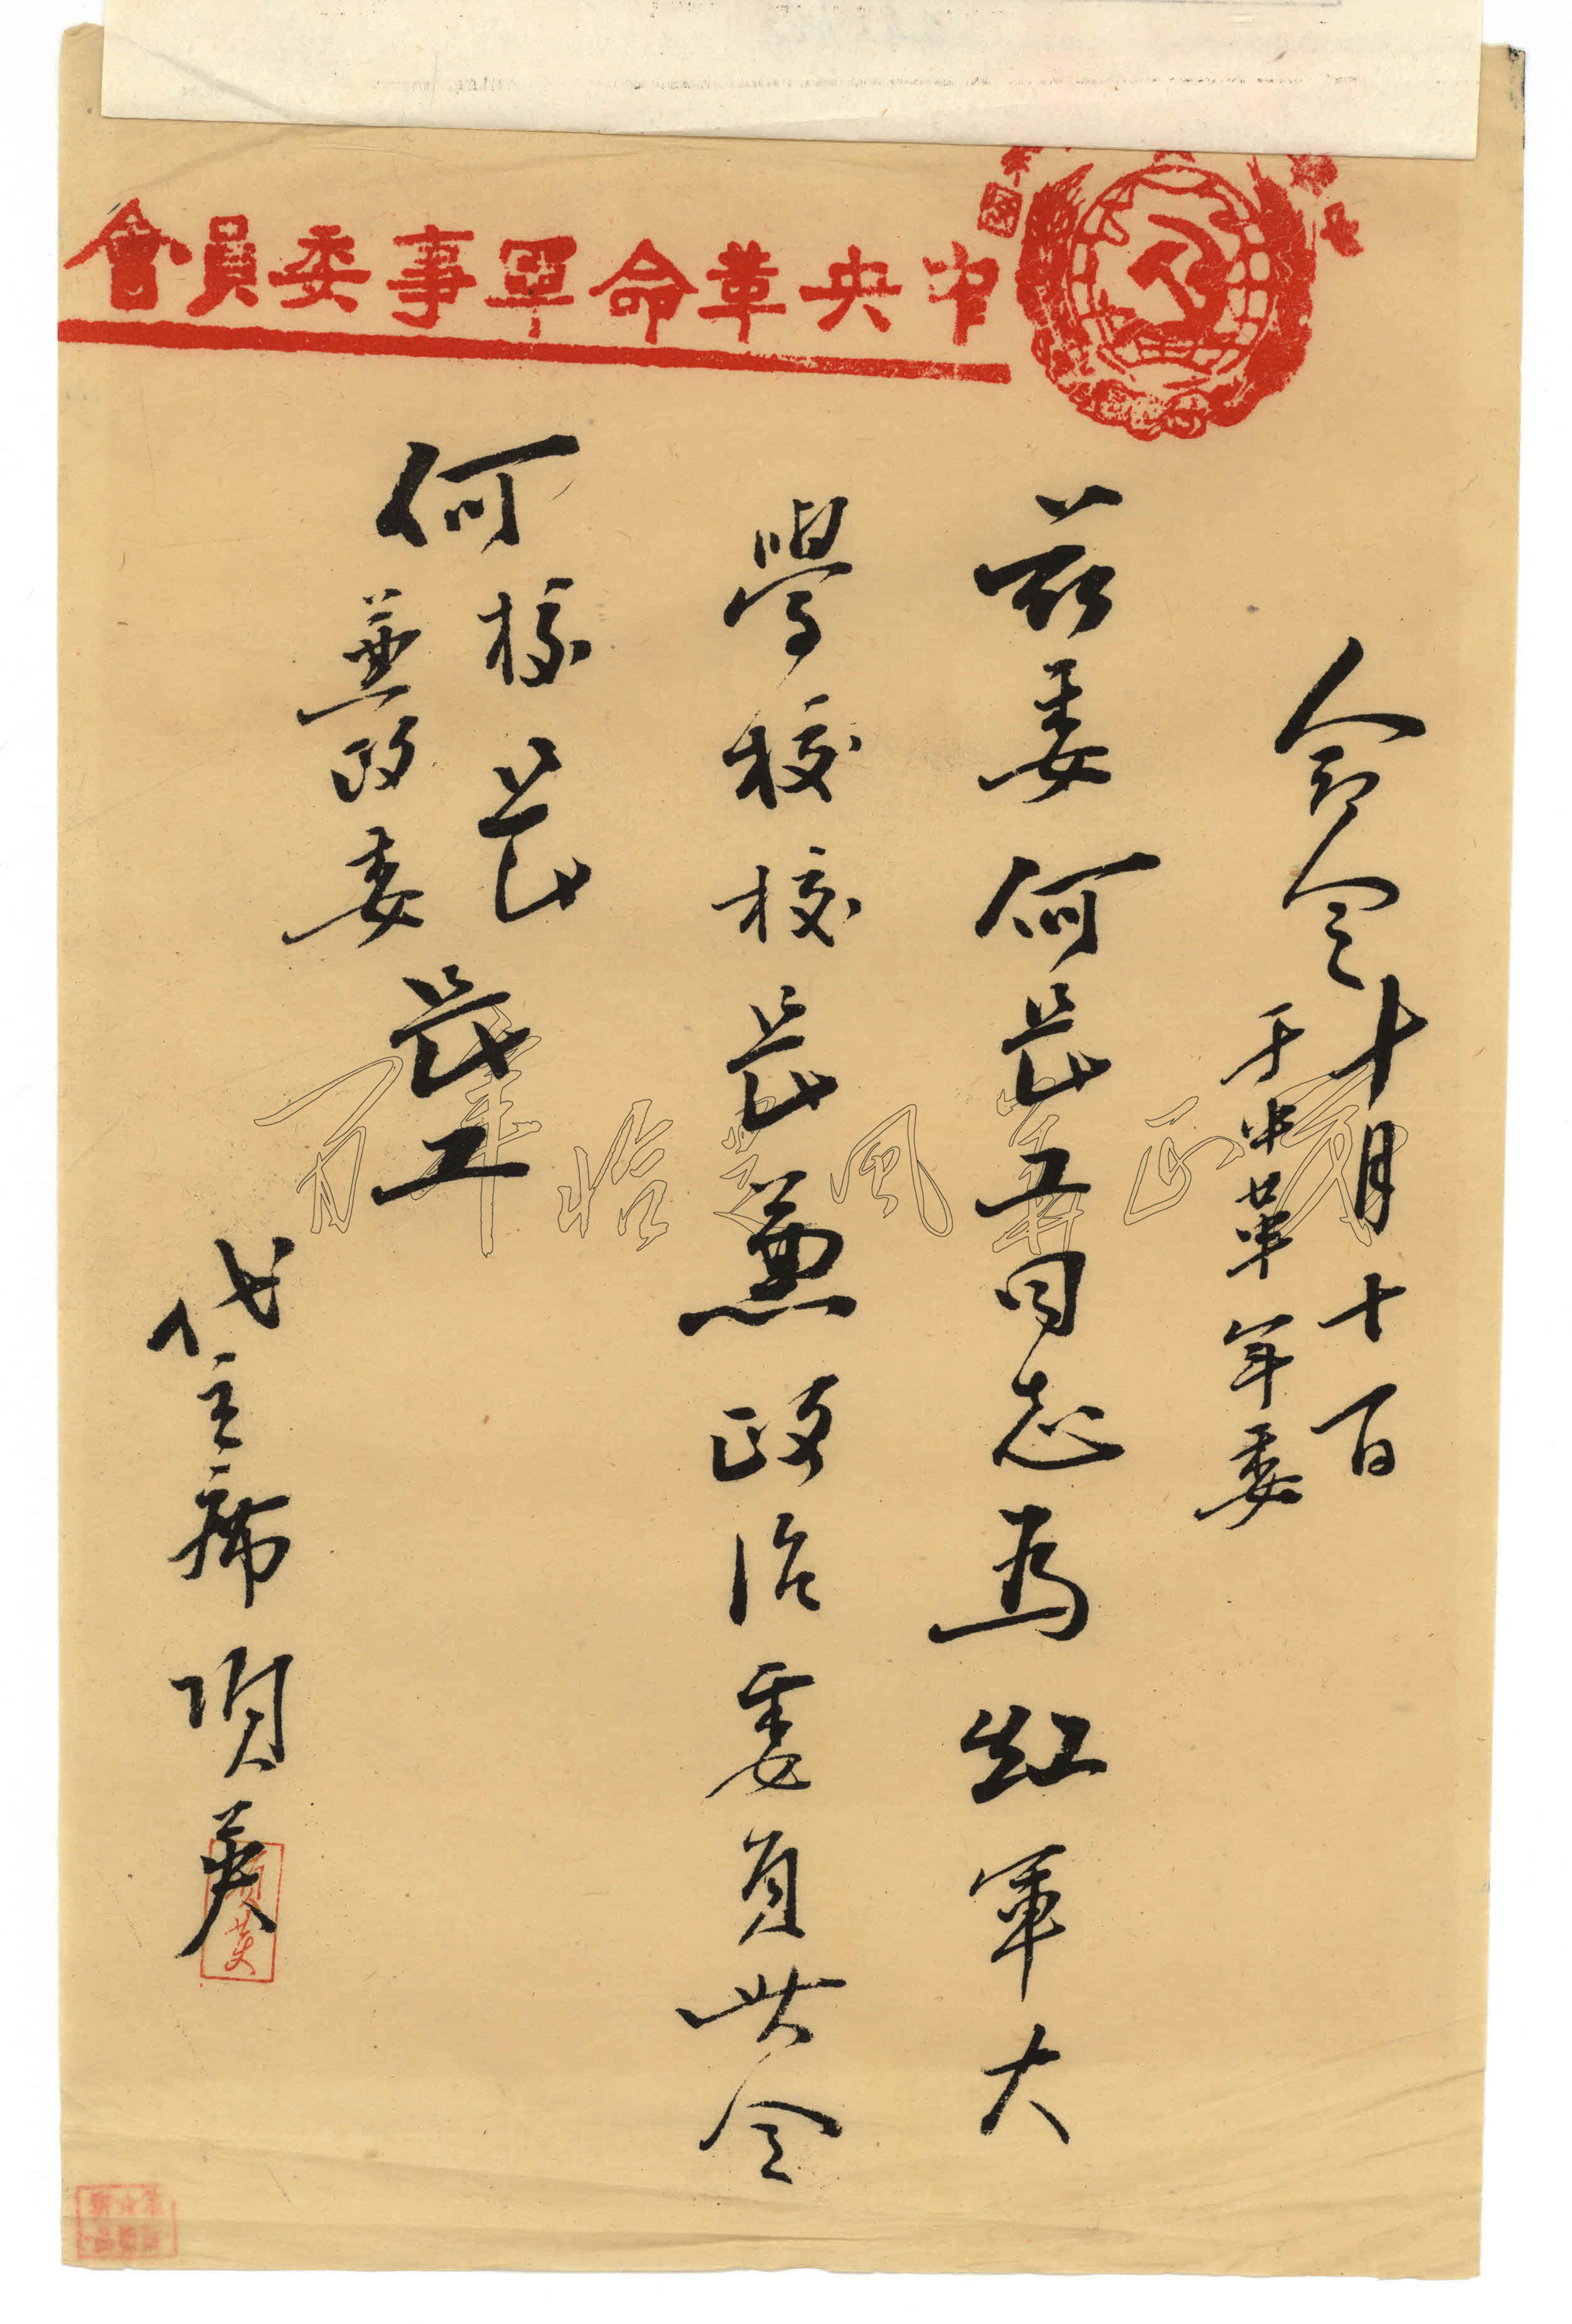 中央革命軍事委員會
命令 十月十一日
于中革軍委
茲委何長工同志為紅軍大
學校校長兼政治委員此令
何校長
兼政委
長工
代主席項英
項英
百年恰是風華正茂